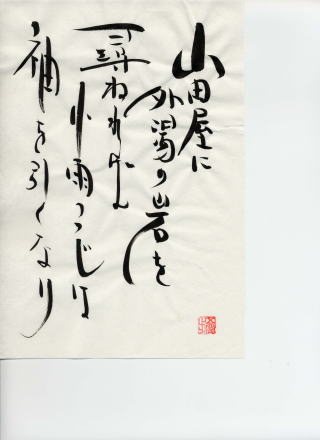 山田屋に
外湯の岩を
尋ねれば
小雨つつじは
袖を引くなり